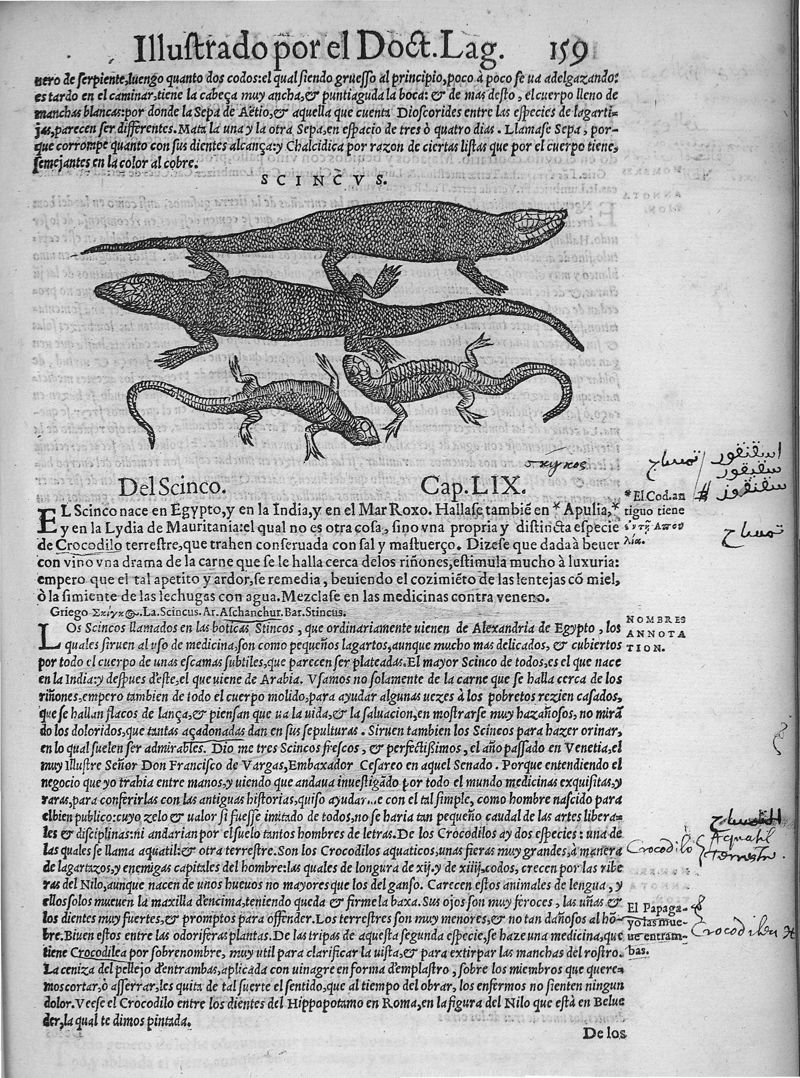 Illustrado por el Doct. Lag. 159
nero de serpiente, luengo quanto dos codos: el qual siendo gruesso al principio, poco à poco se ua adelgazando:
es tardo en el caminar, tiene la cabeça muy ancha, & puntiaguda la boca: & de mas desto, el cuerpo lleno de
manchas blancas: por donde la Sepa de Aëtio, & aquella que cuenta Dioscorides entre las especies de lagarti-
jas, parecen ser differentes. Mata la una y la otra Sepa, en espacio de tres ò quatro dias. Llamase Sepa, por-
que corrompe quanto con sus dientes alcança: y Chalcidica por razon de ciertas listas que por el cuerpo tiene,
semejantes en la color al cobre.
SCINCVS.
Del Scinco. Cap. LIX.
EL Scinco nace en Egypto, y en la India, y en el Mar Roxo. Hallase tambiẽ en * Apulia,*
y en la Lydia de Mauritania: el qual no es otra cosa, sino vna propria y distincta especie
de Crocodilo terrestre, que trahen conseruada con sal y mastuerço. Dizese que dada à beuer
con vino vna drama de la carne que se le halla cerca delos riñones, estimula mucho à luxuria:
empero que el tal apetito y ardor, se remedia, beuiendo el cozimiẽto de las lentejas cõ miel,
ò la simiente de las lechugas con agua. Mezclase en las medicinas contra veneno.
Griego Σκίγκος. La. Scincus. Ar. Aschanchur. Bar. Stincus.
LOs Scincos llamados en las boticas Stincos, que ordinariamente uienen de Alexandria de Egypto, los
quales siruen al uso de medicina, son como pequeños lagartos, aunque mucho mas delicados, & cubiertos
por todo el cuerpo de unas escamas subtiles, que parecen ser plateadas. El mayor Scinco de todos, es el que nace
en la India: y despues d'este, el que uiene de Arabia. Vsamos no solamente de la carne que se halla cerca de los
riñones, empero tambien de todo el cuerpo molido, para ayudar algunas uezes à los pobretos rezien casados,
que se hallan flacos de lança, & piensan que ua la uida, & la saluacion, en mostrarse muy hazañosos, no mirã
do los doloridos, que tantas açadonadas dan en sus sepulturas. Siruen tambien los Scincos para hazer orinar,
en lo qual suelen ser admirables. Dio me tres Scincos frescos, & perfectißimos, el año passado en Venetia, el
muy Illustre Señor Don Francisco de Vargas, Embaxador Cesareo en aquel Senado. Porque entendiendo el
negocio que yo trahia entre manos, y uiendo que andaua inuestigãdo por todo el mundo medicinas exquisitas, y
raras, para conferirlas con las antiguas historias, quiso ayudar..e con el tal simple, como hombre nascido para
el bien publico: cuyo zelo & ualor si fuesse imitado de todos, no se haria tan pequeño caudal de las artes libera-
les & disciplinas: ni andarian por el suelo tantos hombres de letras. De los Crocodilos ay dos especies: una de
las quales se llama aquatil: & otra terrestre. Son los Crocodilos aquaticos, unas fieras muy grandes, à manera
de lagartazos, y enemigas capitales del hombre: las quales de longura de xij. y de xiiij. codos, crecen por las ribe
ras del Nilo, aunque nacen de unos hueuos no mayores que los del ganso. Carecen estos animales de lengua, y
ellos solos mueuen la maxilla d'encima, teniendo queda & firme la baxa. Sus ojos son muy feroces, las uñas &
los dientes muy fuertes, & promptos para offender. Los terrestres son muy menores, & no tan dañosos al hõ-
bre. Biuen estos entre las odoriferas plantas. De las tripas de aquesta segunda especie, se haze una medicina, que
tiene Crocodilea por sobrenombre, muy util para clarificar la uista, & para extirpar las manchas del rostro.
La ceniza del pellejo d'entrambas, aplicada con uinagre en forma d'emplastro, sobre los miembros que quere-
mos cortar, ò asserrar, les quita de tal suerte el sentido, que al tiempo del obrar, los enfermos no sienten ningun
dolor. Veese el Crocodilo entre los dientes del Hippopotamo en Roma, en la figura del Nilo que està en Belue
der, la qual te dimos pintada.
De los
اسقنقور
سقنقور
تمساح
سقنقور #
*El Cod. an
tiguo tiene
تمساح
NOMBRES
ANNOTA
TION.
التمساح
Crocodilo Aquatil
Terrestre.
El Papaga-
yo las mue-
ue entram-
bas.